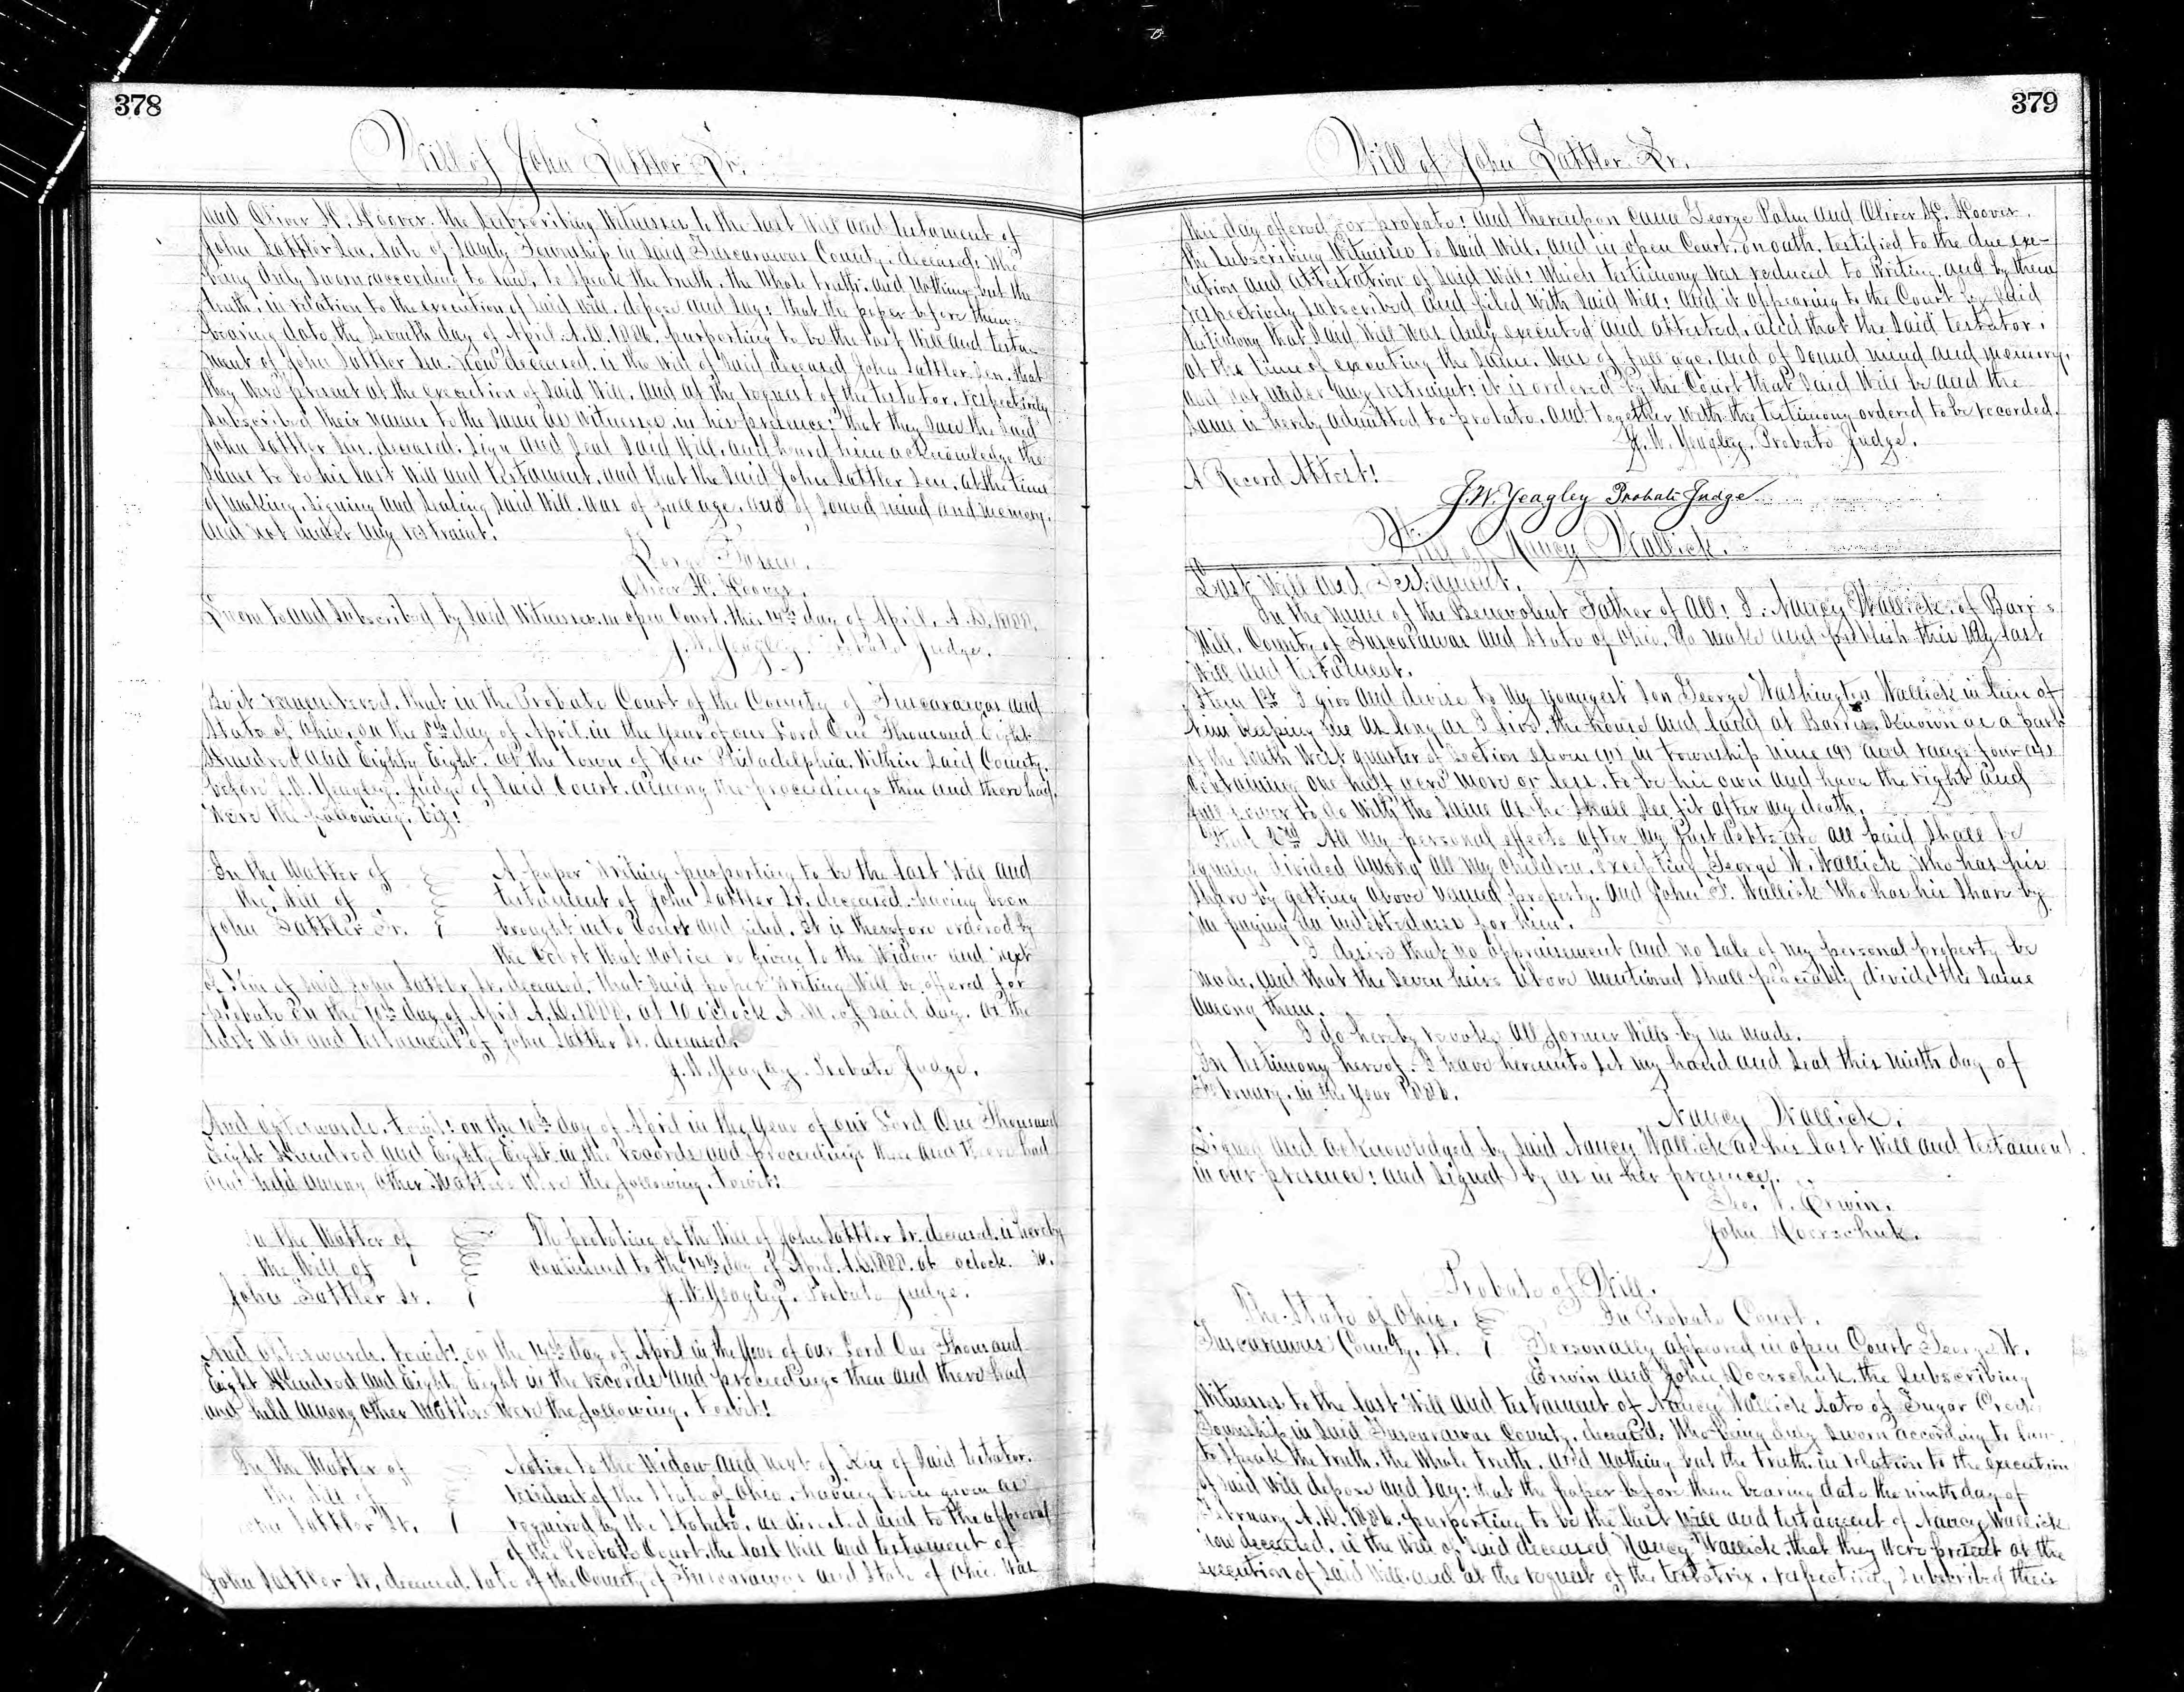 378
Will of John Sattler Sr.
and Oliver H. Hoover. the Subscribing Witnesses to the last Will and testament of
John Sattler Sen. late of Sandy Township in Said Tuscarawas County. deceased: Who
being duly Sworn according to law, to Speak the truth. the Whole truth. and Nothing but the
truth, in relation to the execution of Said Will. depose and Say: that the paper before them
bearing date the Seventh day of April. A.D. 1886. purporting to be the last Will and testa-
ment of John Sattler Sen. Now deceased. is the Will of Said deceased John Sattler Sen. that
they Were present at the execution of Said Will. and at the request of the testator. respectively
Subscribed their names to the Same as Witnesses in his presence: that they Saw the Said
John Sattler Sen. deceased. Sign and Seal Said Will. and heard him acknowledge the
Same to be his last Will and testament. and that the Said John Sattler Sen. at the time
of making. Signing and Sealing Said Will. Was of full age. and of Sound mind and memory.
and not under any restraint.
George
Oliver H. Hoover.
Sworn to and Subscribed by Said Witnesses in open Court. this 14th day of April. A.D. 1888.
J. W. Yeagley. Probate Judge.
Be it remembered, that in the Probate Court of the County of Tuscarawas and
State of Ohio, on the 5th day of April. in the year of our Lord One Thousand Eight
Hundred and Eighty Eight. at the town of New Philadelphia. Within Said County.
before J. W. Yeagley. Judge of Said Court. among the proceedings then and there had.
Were the following. Viz:
In the Matter of
the Will of
John Sattler Sr.
A paper Writing purporting to be the last Will and
testament of John Sattler Sr. deceased. having been
brought into Court and filed. It is therefore ordered by
the Court that Notice be given to the Widow and next
of Kin of Said John Sattler Sr. deceased. that Said paper Writing Will be offered for
probate on the 10th day of April A.D. 1888. at 10 oclock A.M. of Said day. as the
last Will and testament of John Sattler Sr. deceased.
J. W. Yeagley. Probate Judge.
And afterwards. towit: on the 10th day of April in the year of our Lord One Thousand
Eight Hundred and Eighty Eight in the records and proceedings then and there had
and held among other Matters Were the following. towit:
In the Matter of
the Will of
John Sattler Sr.
The probating of the Will of John Sattler Sr. deceased. is hereby
continued to the 14th day of April. A.D. 1888. at oclock. M.
J. W. Yeagley. Probate Judge.
And afterwards. towit: on the 14th day of April in the Year of our Lord One Thousand
Eight Hundred and Eighty Eight in the records and proceedings then and there had
and held among other Matters Were the following. towit:
In the Matter of
the Will of
John Sattler Sr.
Notice to the Widow and next of Kin of Said testator.
resident of the State of Ohio. having been given as
required by the Statute, as directed and to the approval
of the Probate Court. the last Will and testament of
John Sattler Sr. deceased. late of the County of Tuscarawas and State of Ohio. Was
379
Will of John Sattler Sr.
this day offered for probate: and thereupon came George Palm and Oliver H. Hoover.
the Subscribing Witnesses to Said Will. and in open Court. on oath. testified to the due exe-
cution and attestation of Said Will: Which testimony Was reduced to Writing. and by them
respectively Subscribed and filed With Said Will: and it appearing to the Court by Said
testimony that Said Will Was duly executed and attested. and that the Said testator.
at the time of executing the Same. Was of full age. and of Sound mind and memory.
and not under any restraint: it is ordered by the Court that Said Will be and the
Same is hereby admitted to probate. and together With the testimony ordered to be recorded.
J. W. Yeagley. Probate Judge.
A Record Attest:
J. W. Yeagley Probate Judge
Will of Nancy Wallick.
Last Will and Testament.
In the name of the Benevolent Father of All: I. Nancy Wallick. of Barrs
Mill. County of Tuscarawas and State of Ohio. do make and publish this My last
Will and testament.
Item 1st I give and devise to My youngest Son George Washington Wallick in lieu of
him keeping me as long as I live. the house and land at Barrs. Known as a part
of the South West quarter of Section eleven (11) in township nine (9) and range four (4)
containing one half acre more or less. to be his own and have the right and
full power to do With the Same as he Shall See fit after my death.
Item 2nd All My personal effects after My just debts are all paid Shall be
equally divided among all My children. excepting George W. Wallick Who has his
Share by getting above named property. and John F. Wallick Who has his Share by
me paying an indebtedness for him.
I desire that no appraisement and no Sale of my personal property be
made. and that the Seven heirs above mentioned Shall peaceably divide the Same
among them.
I do hereby revoke all former Wills by me made.
In testimony hereof. I have hereunto Set my hand and Seal this ninth day of
February. in the Year 1886.
Nancy Wallick.
Signed and acknowledged by Said Nancy Wallick as his last Will and testament
in our presence: and Signed by us in her presence.
Geo. W. Erwin.
John Doerschuk.
Probate of Will.
The State of Ohio.
Tuscarawas County. SS.
In Probate Court.
Personally appeared in open Court George W.
Erwin and John Doerschuk. the Subscribing
Witnesses to the last Will and testament of Nancy Wallick late of Sugar Creek
Township in Said Tuscarawas County. deceased. Who being duly Sworn according to law.
to Speak the truth. the Whole truth. and nothing but the truth. in relation to the execution
of Said Will depose and Say: that the paper before them bearing date the ninth day of
February A.D. 1886. purporting to be the last Will and testament of Nancy Wallick
now deceased. is the Will of Said deceased Nancy Wallick. that they Were present at the
execution of Said Will. and at the request of the testatrix. respectively Subscribed their